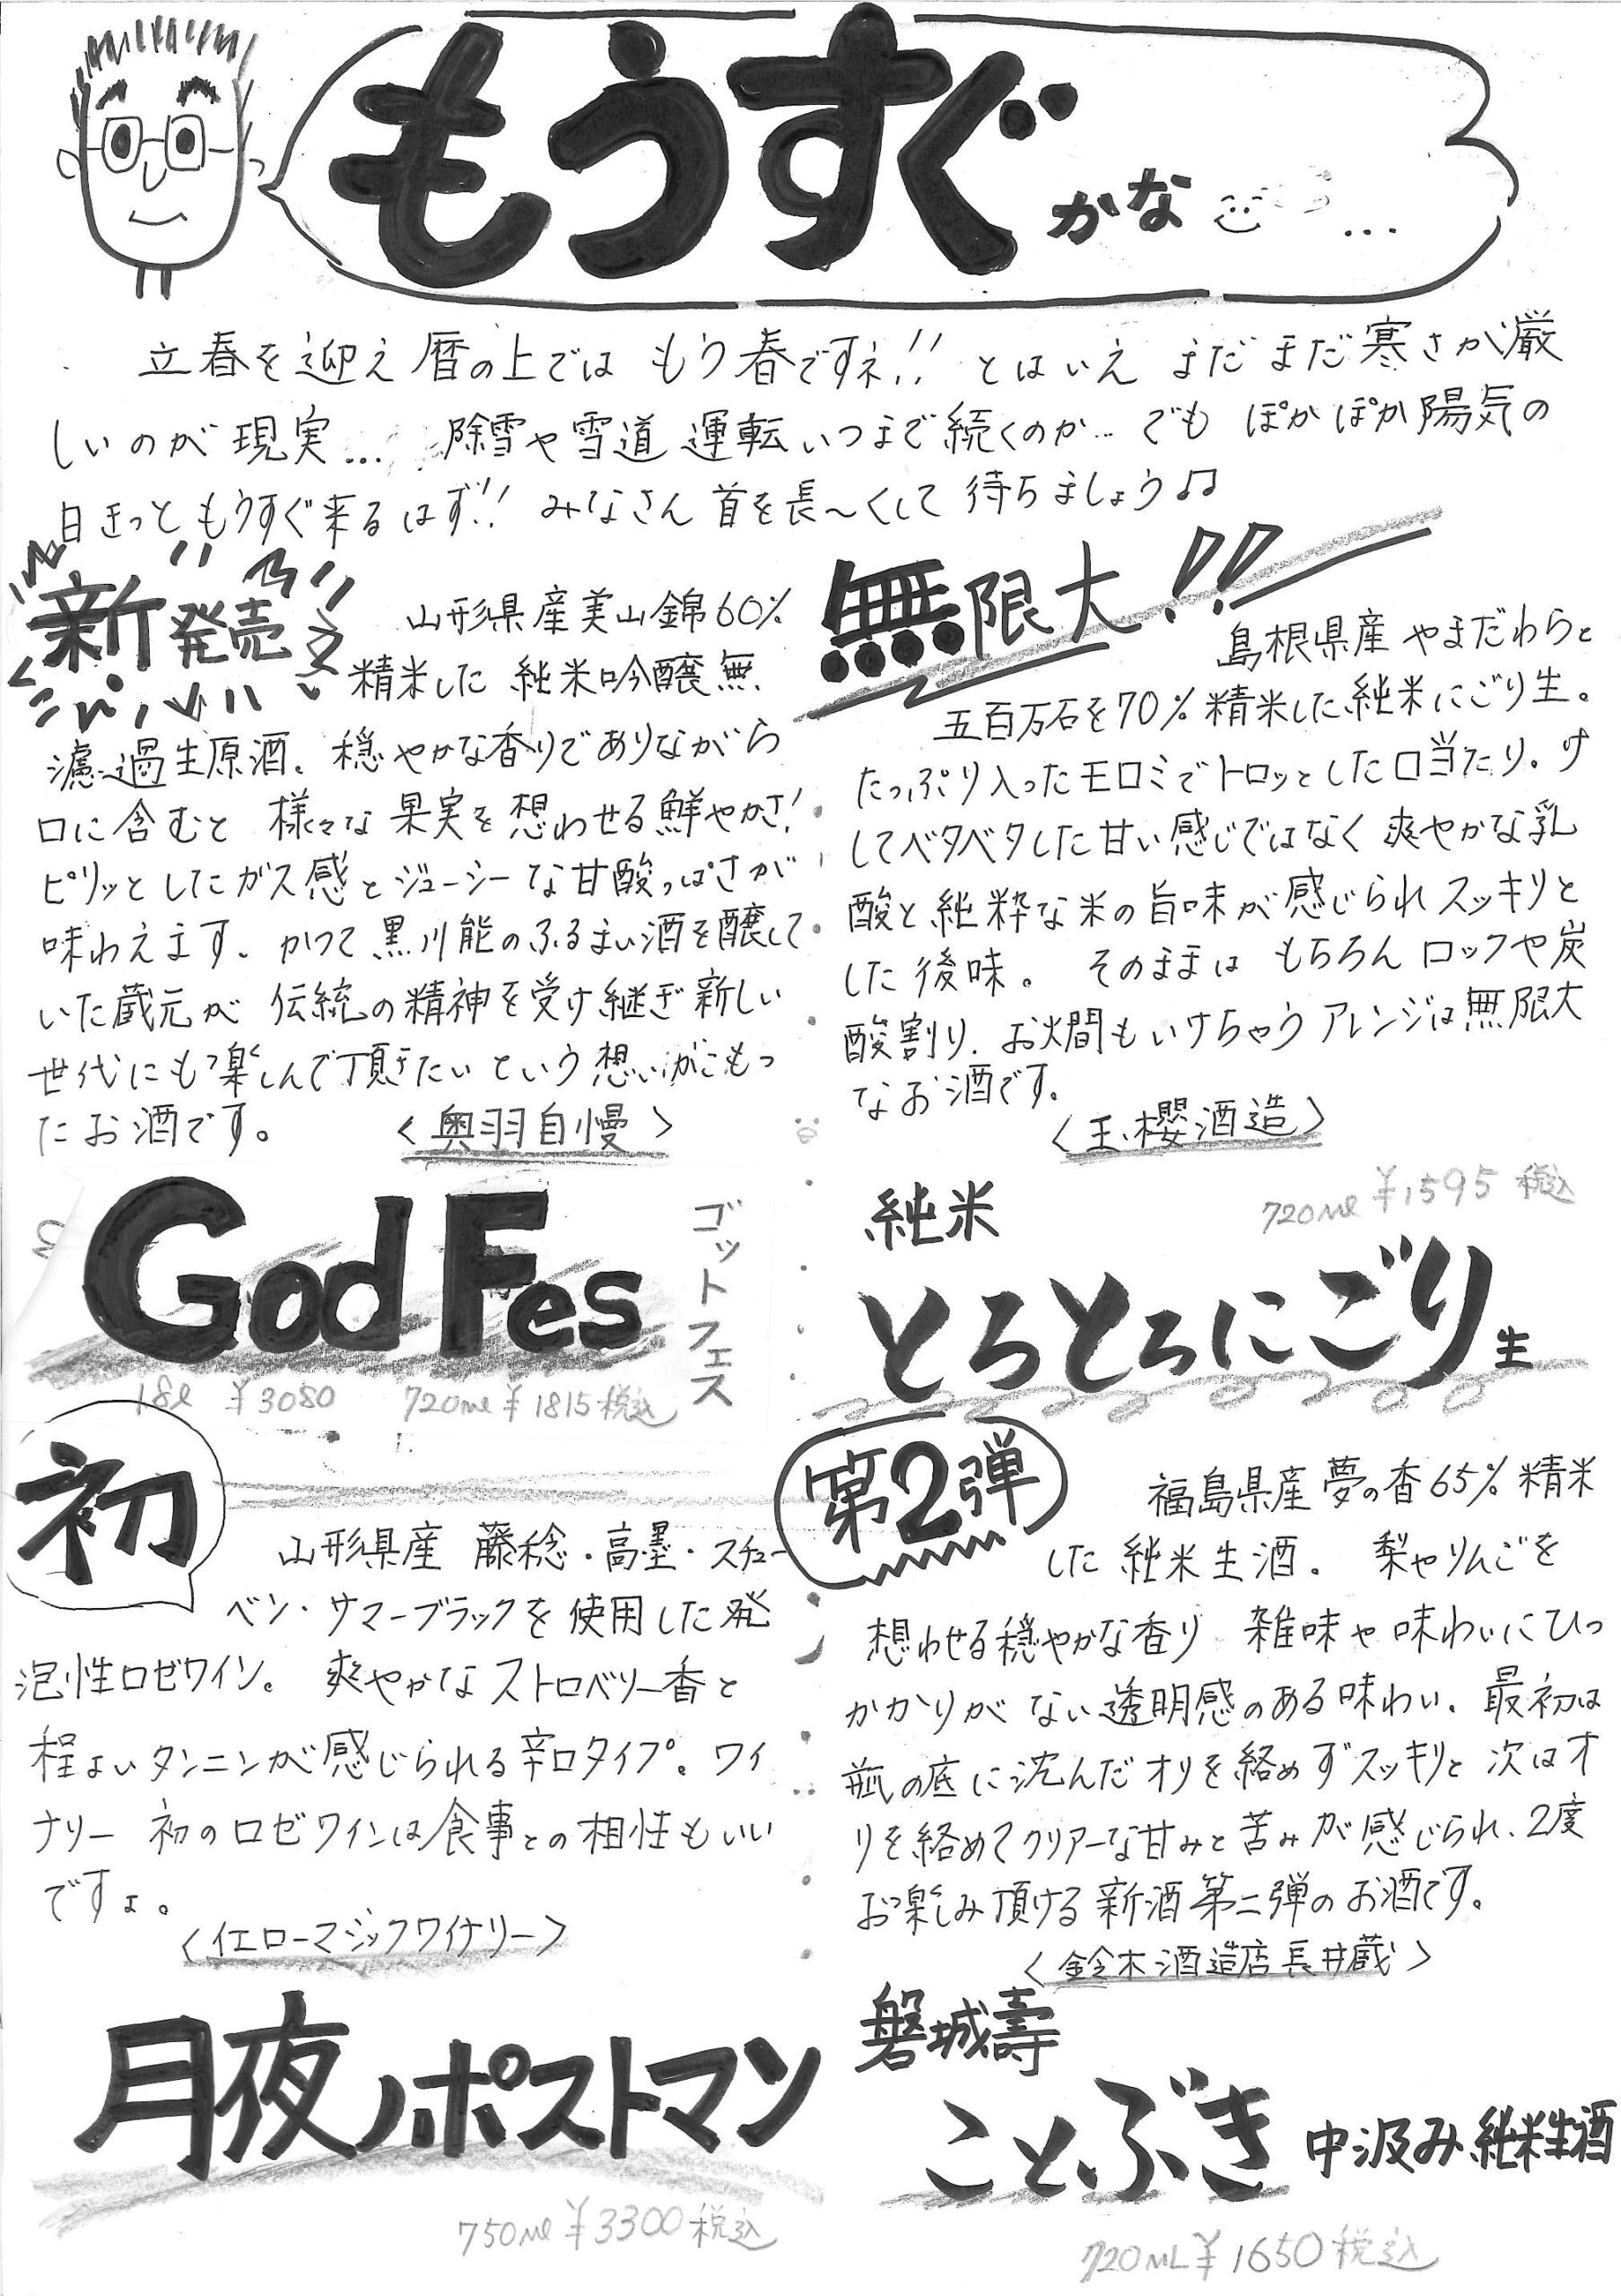 もうすぐかな...
立春を迎え暦の上では もう春ですネ!! とはいえ まだまだ寒さが厳
しいのが現実... 除雪や雪道運転いつまで続くのか... でも ぽかぽか陽気の
日きっともうすぐ来るはず!! みなさん首を長〜くして待ちましょう♫
新発売
山形県産美山錦60%
精米した純米吟醸無
濾過生原酒。穏やかな香りでありながら
口に含むと様々な果実を想わせる鮮やかさ!
ピリッとしたガス感とジューシーな甘酸っぱさが
味わえます。かつて黒川能のふるまい酒を醸して
いた蔵元が伝統の精神を受け継ぎ新しい
世代にも楽しんで頂きたいという想いがこもっ
たお酒です。
〈奥羽自慢〉
God Fes
ゴットフェス
1.8l ¥3080 720ml ¥1815税込
無限大!!
島根県産やまだわらと
五百万石を70%精米した純米にごり生。
たっぷり入ったモロミでトロッとした口当たり。け
してベタベタした甘い感じではなく爽やかな乳
酸と純粋な米の旨味が感じられスッキリと
した後味。そのままは もちろん ロックや炭
酸割り、お燗もいけちゃうアレンジは無限大
なお酒です。
〈玉櫻酒造〉
純米
720ml ¥1595 税込
とろとろにごり生
初
山形県産 藤稔・高墨・スチュー
ベン・サマーブラックを使用した発
泡性ロゼワイン。爽やかなストロベリー香と
程よいタンニンが感じられる辛口タイプ。ワイ
ナリー初のロゼワインは食事との相性もいい
ですよ。
〈イエローマジックワイナリー〉
月夜ノポストマン
750ml ¥3300税込
第2弾
福島県産夢の香65%精米
した純米生酒。梨やりんごを
想わせる穏やかな香り 雑味や味わいにひっ
かかりがない透明感のある味わい。最初は
瓶の底に沈んだオリを絡めずスッキリと次はオ
リを絡めてクリアーな甘みと苦みが感じられ、2度
お楽しみ頂ける新酒第二弾のお酒です。
〈鈴木酒造店長井蔵〉
磐城壽
ことぶき 中汲み純米生酒
720ML ¥1650税込